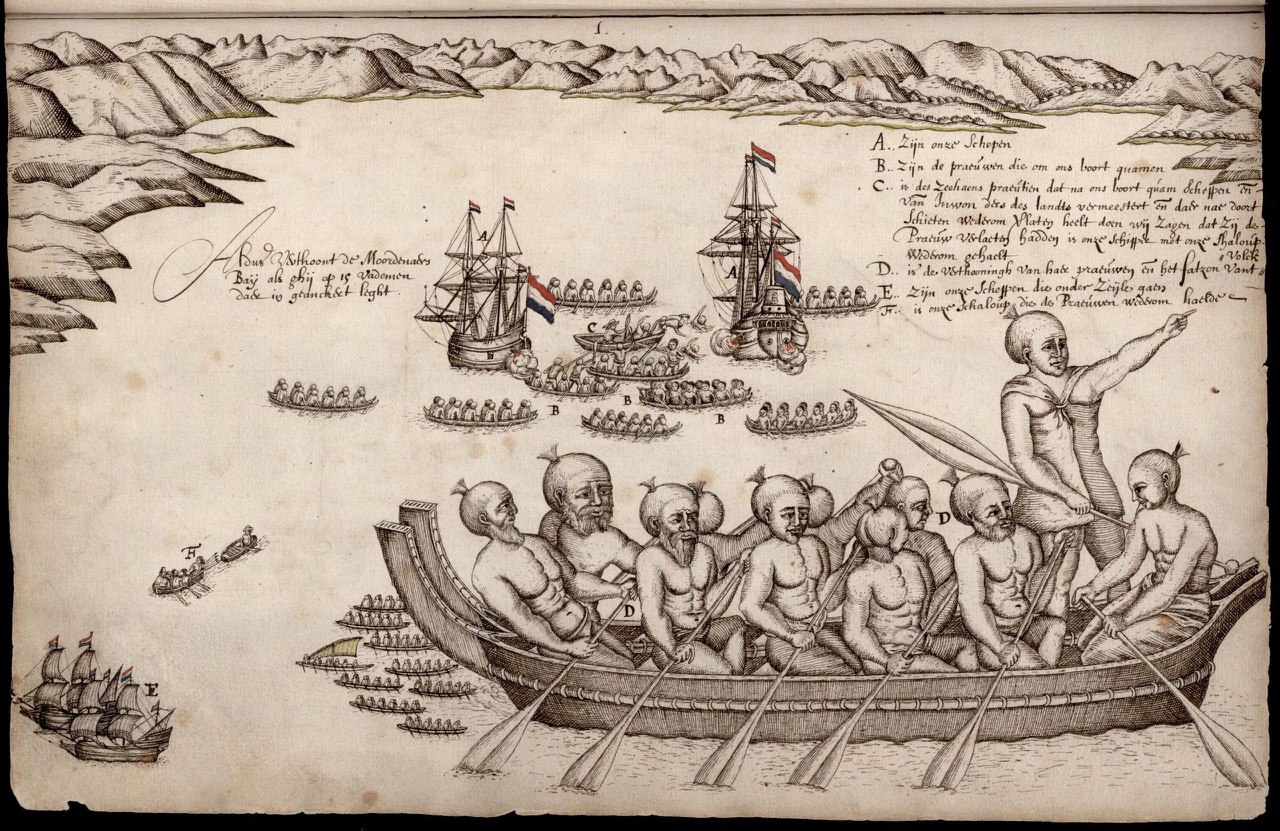 1.
A.. Zijn onze Schepen
B.. Zijn de praeuwen die om ons boort quamen
C.. is des Zeehaens praeutien dat na ons boort quam Scheppen en
van Inwon ders des landts vermeestert en daer nae doort
Schieten wederom Vlaten heelt doen wij Zagen dat Zij de
Praeuw verlaeten hadden is onze Schipper met onze Shaloup
wederom gehaelt
D.. is de verthooningh van haer praeuwen en het fatzon vant Volck
E.. Zijn onze Scheppen die onder Zeijle gaen
F.. is onze Schaloup die de Praeuwen wederom haelde
Aldus verthoont de Moordenaers
Bay als ghij op 15 vademen
daer in geanckert leght
A
A
C
B
B
B
D
D
F
E